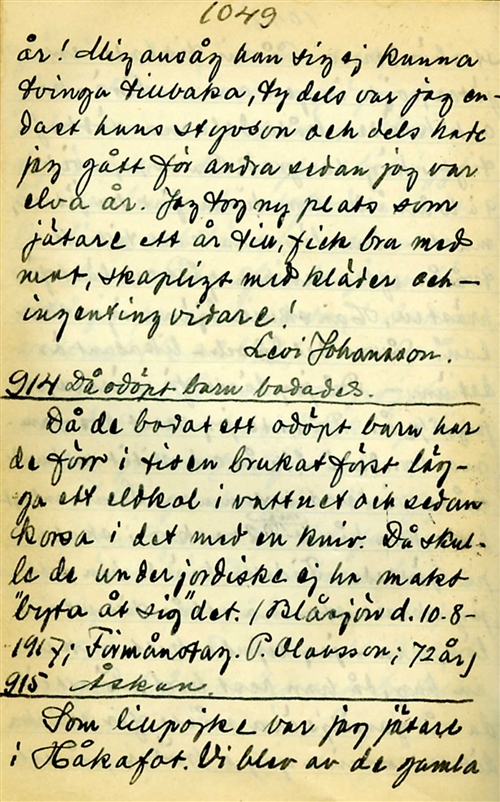 1049
år! Mig ansåg han sig ej kunna
tvinga tillbaka, ty dels var jag en-
dast hans styvson och dels hade
jag gått för andra sedan jag var
elva år. Jag tog ny plats som
jätare ett år till, fick bra med
mat, skapligt med kläder och —
ingenting vidare!
Levi Johansson.
914 Då odöpt barn badades.
Då de badat ett odöpt barn har
de förr i tiden brukat först läg-
ga ett eldkol i vattnet och sedan
korsa i det med en kniv. Då skul-
le de underjordiske ej ha makt
"byta åt sig" det. (Blåsjön d. 10-8-
1917; Förmånstag. P. Olavsson; 72 år)
915 Åskan.
Som lillpojke var jag jätare
i Håkafot. Vi blev av de gamla